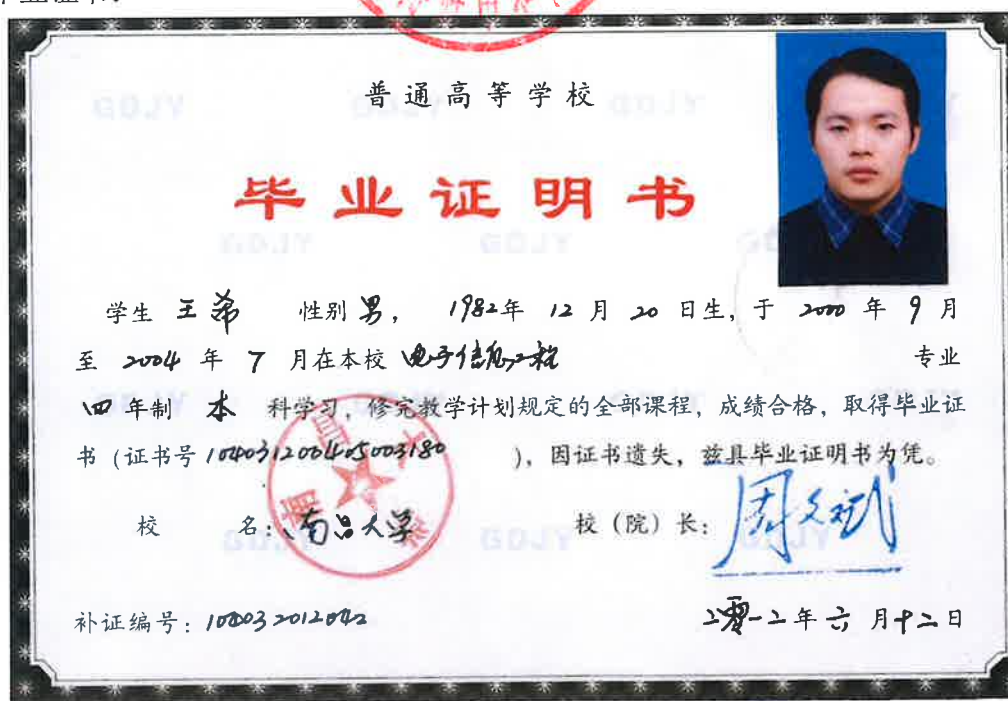 普通高等学校
毕业证明书
学生 王希 性别 男， 1982年 12 月 20 日生，于 2000 年 9 月
至 2004 年 7 月在本校 电子信息工程 专业
四 年制 本 科学习，修完教学计划规定的全部课程，成绩合格，取得毕业证
书（证书号 104031200405003180 ），因证书遗失，兹具毕业证明书为凭。
校 名：南昌大学 校（院）长：周文斌
南昌大学
补证编号：104032012042 二零一二年 六 月十二日